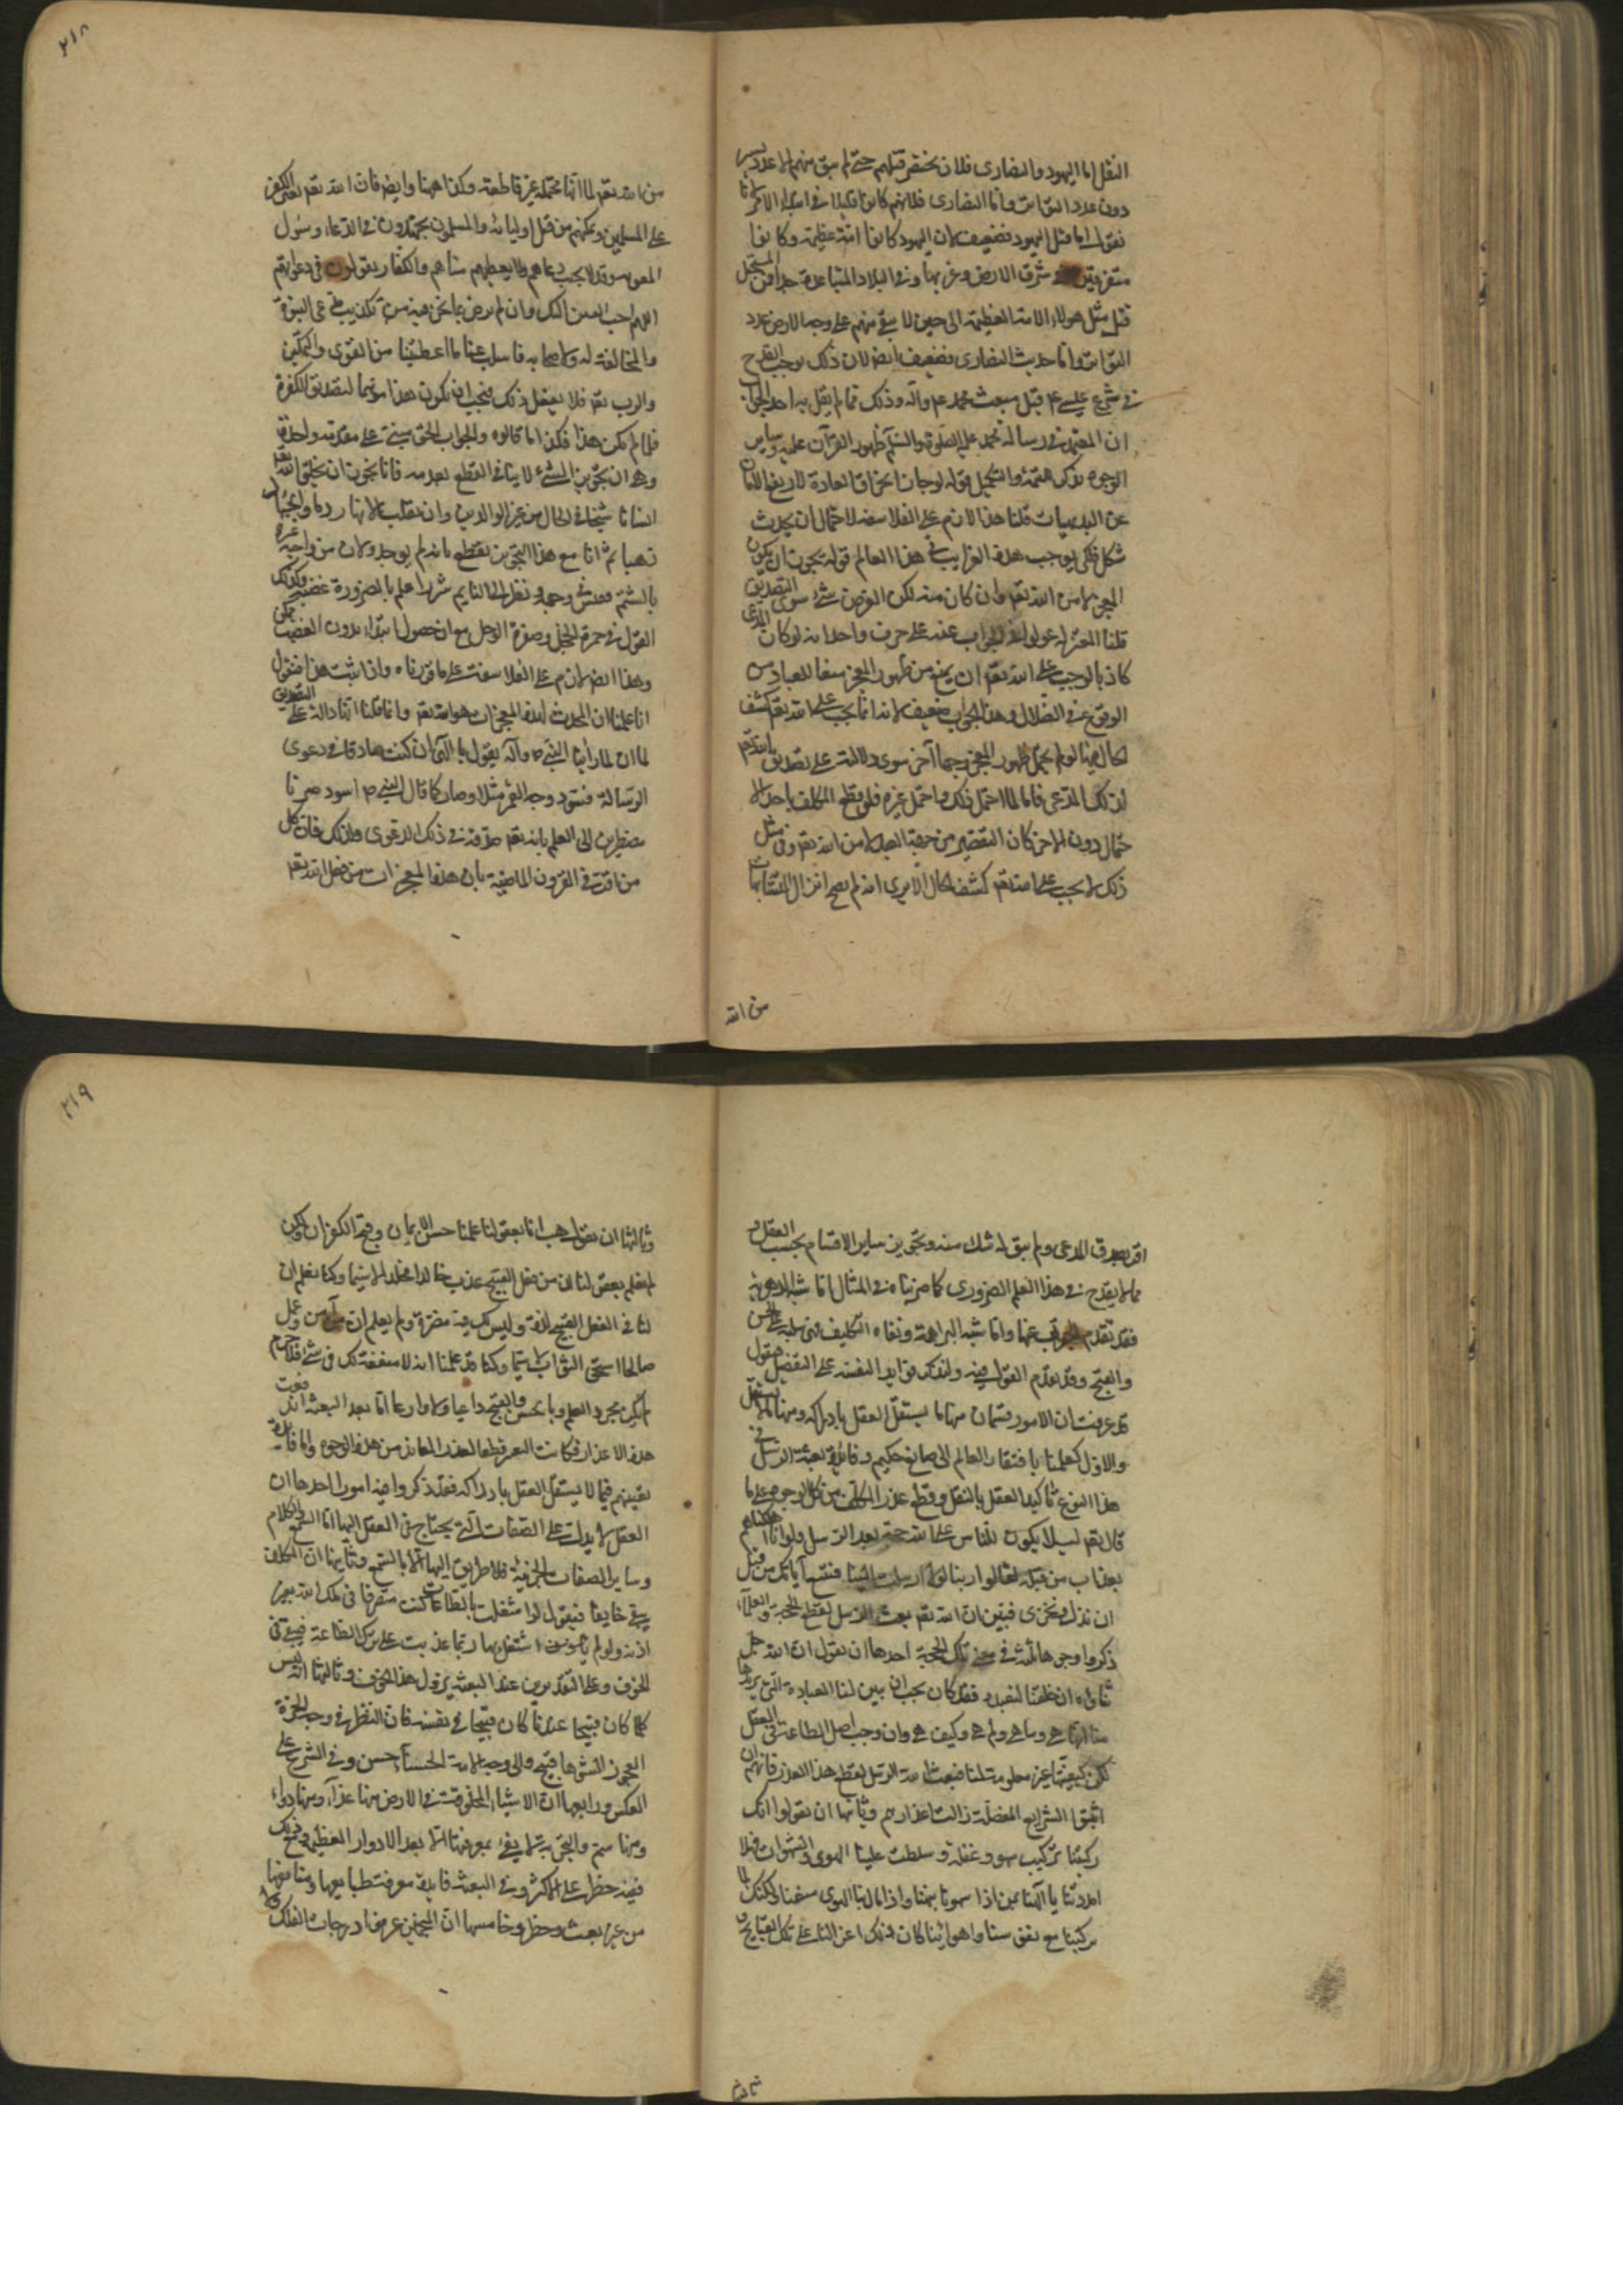 النقل اما اليهود والنصارى فلان بختنصر قتلهم حتى لم يبق منهم الا عدد يسير
دون عدد التواتر واما النصارى فلانهم كانوا قليلا في ابتداء الامر لانا
نقول اما قتل اليهود فضعيف لان اليهود كانوا امة عظيمة وكانوا
متفرقين في شرق الارض وغربها وفي البلاد المتباعدة جدا فمن المستحيل
قتل مثل هولاء الامة العظيمة الى حين لا يبقى منهم على وجه الارض عدد
التواتر واما حديث النصارى فضعيف ايضا لان ذلك يوجب القدح
في شرع عيسى ع م قبل مبعث محمد ع م وآله وذلك مما لم يقل به احد الجواب
ان المعتمد في رسالة محمد عليه الصلوة والسلم ظهور القرآن عليه وساير
الوجوه يذكر للتتمة والتكميل قوله لو جاز انخراق العادة لارتفع الامان
عن البديهيات قلنا هذا لازم على الفلاسفة لاحتمال ان يحدث
شكل فلكي يوجب هذه الغرايب في هذا العالم قوله يجوز ان يكون
المعجز لا من الله تعم وان كان منه لكن الغرض شئ سوى التصديق
قلنا المعتزلة عولوا في الجواب عنه على حرف واحد انه لو كان المدعي
كاذبا لوجب على الله تعم ان يمنع من ظهور المعجز منعا للعباد من
الوقوع في الضلال وهذا الجواب ضعيف لانه انما يجب على الله تعم كشف
الحال فيه لو لم يحتمل ظهور المعجز وجها آخر سوى دلالته على تصديق الله تعم
لذلك المدعي فاما لما احتمل ذلك واحتمل غيره فلو قطع المكلف باحد الا
حتمال دون الاخر كان التقصير من جهة العبد لا من الله تعم وفي مثل
ذلك لا يجب على الله تعم كشف الحال الا يرى انه لم يصح انزال المتشابهات
من الله
٢١٨
من الله تعم لما انها محتملة غير قاطعة وكذا ههنا وايضا فان الله تعم يقوى الكفر
على المسلمين ويمكنهم من قتل اوليائه والمسلمون يجتهدون في الدعاء وسؤل
المعونة وقد لا يجيب دعاهم ولا يعطيهم مناهم والكفار يقولون في دعواتهم
اللهم احب الدين اليك وان لم ترض بما نحن فيه من تكذيب مدعى النبوة
والمخالفة له ولاصحابه فاسلب عنا ما اعطيتنا من القوى والتمكين
والرب تعم فلا يفعل ذلك فيجب ان يكون هذا موهما لتصديق الكفرة
فلما لم يكن هذا فكذا اما قالوه والجواب الحق يبتنى على مقدمة واحدة
وهي ان تجويز الشئ لا ينافي القطع بعدمه فانا نجوز ان يخلق الله تعم
انسانا شيخا في الحال من غير الوالدين وان يقلب الانهار دما والجبال
ذهبا ثم انا مع هذا التجويز نقطع بانه لم يوجد ولان من واجه غيره
بالشتم فعبس وجهه ونظر الى الشاتم شزرا علم بالضرورة غضبه وكذلك
القول في حمرة الخجل وصفرة الوجل مع ان حصولها ابتداء بدون الغضب ممكن
وهذا ايضا لازم على الفلاسفة على ما قررناه واذا ثبت هذا فنقول
انا علمنا ان المحدث لهذه المعجزات هو الله تعم وانما قلنا انها دالة على التصديق
لما ان لما رأينا النبي ص وآله يقول يا الهى ان كنت صادقا في دعوى
الرسالة فسود وجه القمر مثلا وصار كما قال النبي ص اسود صرنا
مضطرين الى العلم بانه تعم صدقه في ذلك الدعوى ولذلك فان كل
من اقر في القرون الماضية بان هذه المعجزات من فعل الله تعم
اقر بصدق المدعى ولم يبق له شك منه وتجويز ساير الاقسام بحسب العقل
مما لا يقدح في هذا العلم الضروري كما ضربناه في المثال اما شبه الدهرية
فقد تقدم الجواب عنها واما شبه البراهمة ونفاة التكليف فمبنى على الحسن
والقبح وقد تقدم القول فيه ولنذكر فوايد البعثة على التفصيل فنقول
قد عرفت ان الامور قسمان منها ما يستقل العقل بادراكه ومنها ما لا يستقل
والاول كعلمنا بافتقار العالم الى صانع حكيم وفايدة بعثة الرسل في
هذا النوع تأكيد العقل بالنقل وقطع عذر المكلف من كل الوجوه على ما
قال تعم ليلا يكون للناس على الله حجة بعد الرسل ولو انا اهلكناهم
بعذاب من قبله لقالوا ربنا لولا ارسلت الينا فنتبع آياتك من قبل
ان نذل ونخزى فبين ان الله تعم بعث الرسل لقطع الحجة والعلماء
ذكروا وجوها ثلثة في معنى تلك الحجة احدها ان نقول ان الله جل
ثناوه ان خلقنا لنعبده فقد كان يجب ان يبين لنا العبادة التى يريدها
منا انها ما هي وكم هي وكيف هي وان وجب اصل الطاعة في العقل
لكن كيفيتها غير معلومة لنا فبعث الله الرسل لقطع هذا العذر فانهم ان
اثبتوا الشرايع المفصلة زالت اعذارهم وثانيها ان يقولوا انك
ركبتنا تركيب سهو وغفلة وسلطت علينا الهوى والشهوات فهلا
امددتنا يا الهنا بمن اذا سهونا نبهنا واذا مال بنا الهوى منعنا ولكنك لما
تركتنا مع نفوسنا واهوائنا كان ذلك اغراء لنا على تلك القبايح و
ثالثها
٢١٩
وثالثها ان يقول هب انا بعقولنا علمنا حسن الايمان وقبح الكفر ان لكن
لم نعلم بعقولنا ان من فعل القبيح عذب خالدا مخلدا لا سيما وكنا نعلم ان
لنا في الفعل القبيح لذة وليس لك فيه مضرة ولم نعلم ان من آمن وعمل
صالحا استحق الثواب لا سيما وكنا قد علمنا انه لا منفعة لك في شئ فلا جرم
لم يكن مجرد العلم بالحسن والقبح داعيا ولا وازعا اما بعد البعثة اندفعت
هذه الاعذار فكانت البعثة قطعا لعذر المعاند من هذه الوجوه واما فايدة
بعثهم فيما لا يستقل العقل بادراكه فقد ذكروا فيه امورا احدها ان
العقل لا يدل على الصفات التى يحتاج في العقل اليها اما السمع والكلام
وساير الصفات الخبرية فلا طريق اليها الا بالسمع وثانيها ان المكلف
يبقى خايفا فيقول لو اشتغلت بالطاعات كنت متصرفا في ملك الله بغير
اذنه ولو لم اشتغل بها ربما عذبت على ترك الطاعة فيبقى في
الخوف وعلى التقديرين عند البعثة يزول هذا الخوف وثالثها انه ليس
كلما كان قبيحا عندنا كان قبيحا في نفسه فان النظر في وجه الحرة
العجوز الشوهاء قبيح والى وجه الامة الحسناء حسن وفي الشرع على
العكس ورابعها ان الاشياء المخلوقة في الارض منها غذاء ومنها دواء
ومنها سم والتجربة لا يفي بمعرفتها الا بعد الادوار العظيمة ومع ذلك
ففيه خطر على الاكثر وفي البعثة فايدة معرفة طبايعها ومنافعها
من غير بعث وخطر وخامسها ان المنجمين عرفوا درجات الفلك